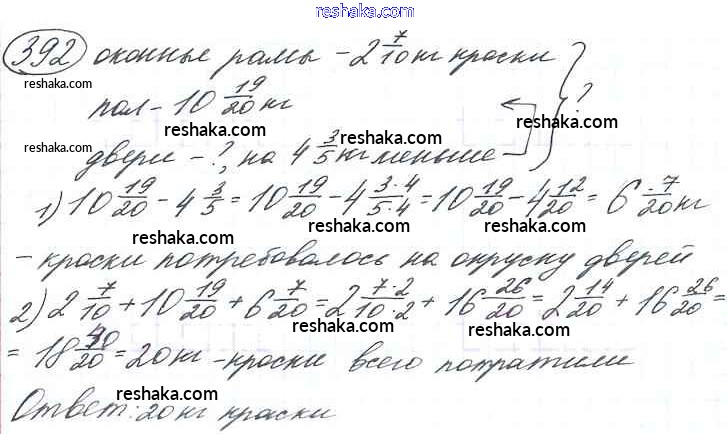 reshaka.com
392 оконные рамы - 2 7/10 кг краски
reshaka.com reshaka.com
пол - 10 19/20 кг
reshaka.com reshaka.com ?
reshaka.com
двери - ?, на 4 3/5 кг меньше
reshaka.com
1) 10 19/20 - 4 3/5 = 10 19/20 - 4 3·4/5·4 = 10 19/20 - 4 12/20 = 6 7/20 кг
reshaka.com reshaka.com reshaka.com
- краски потребовалось на окруску дверей
reshaka.com reshaka.com
2) 2 7/10 + 10 19/20 + 6 7/20 = 2 7·2/10·2 + 16 26/20 = 2 14/20 + 16 26/20 =
reshaka.com reshaka.com
= 18 40/20 = 20 кг - краски всего потратили
reshaka.com reshaka.com
Ответ: 20 кг краски
reshaka.com